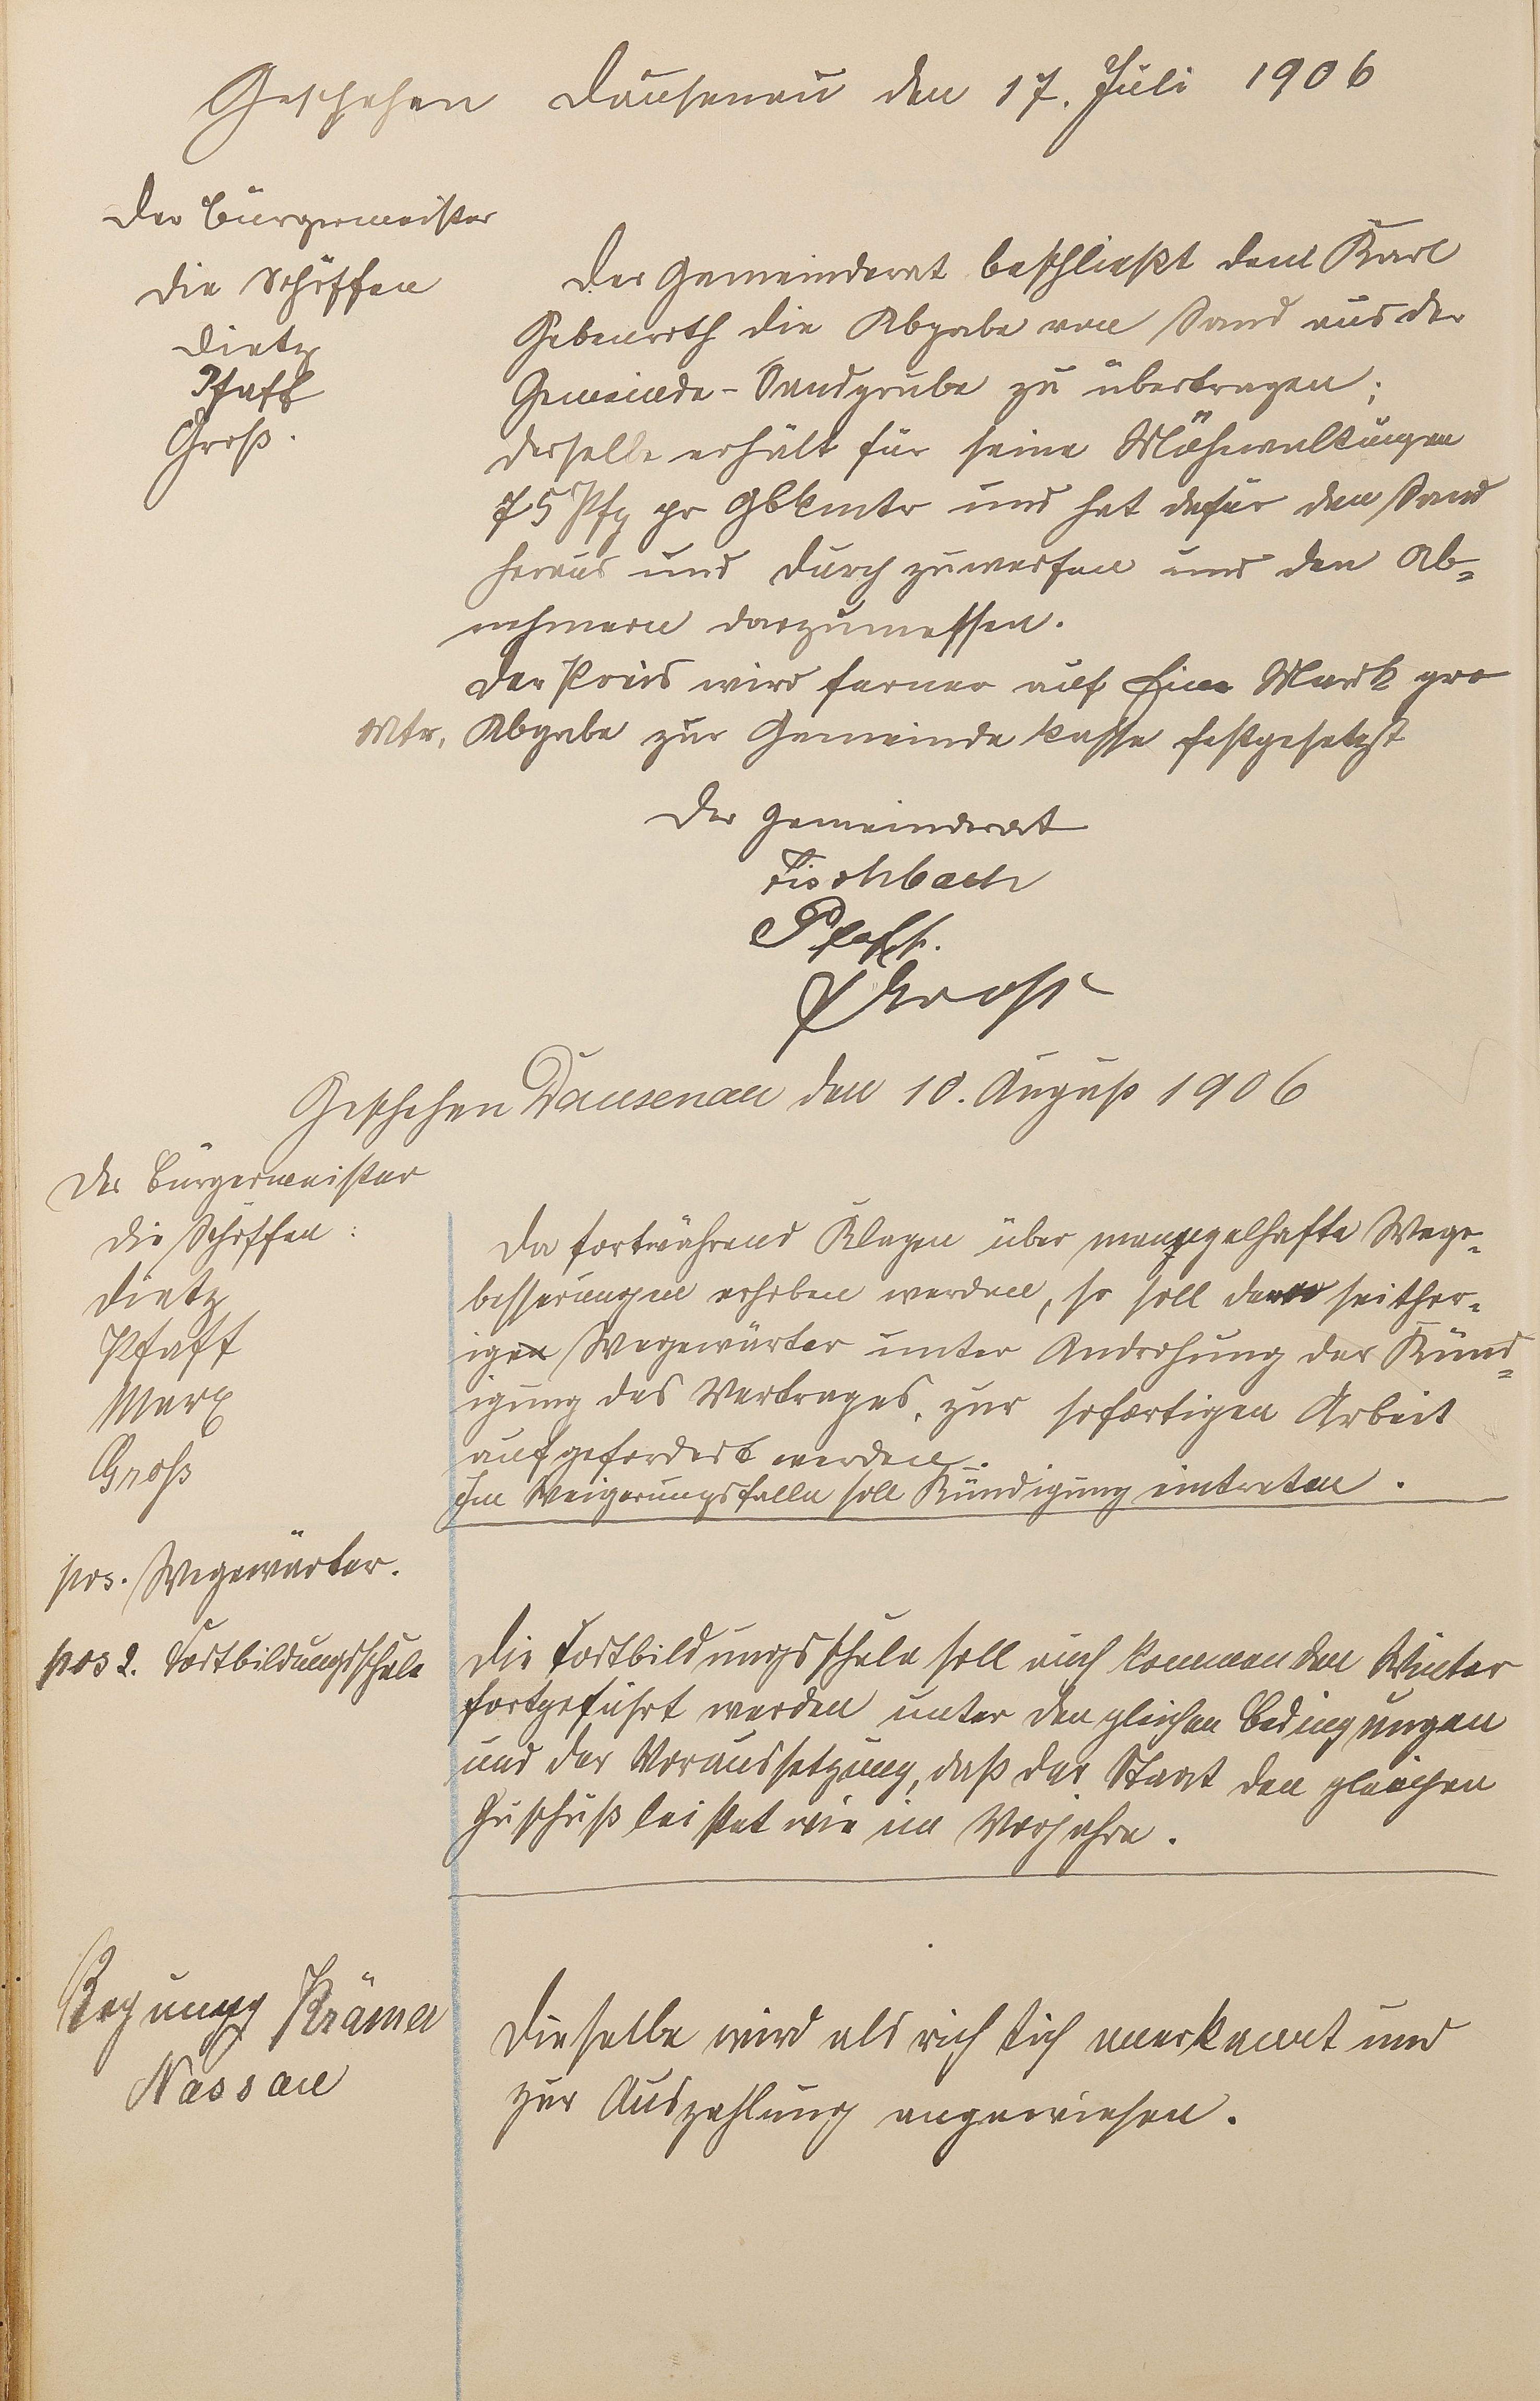 Geschehen Dausenau den 17. Juli 1906
Der Bürgermeister
Die Schöffen
Dietz
Pfaff
Groß.
Der Gemeinderat beschließt dem Karl
die Abgabe von Sand aus der
Gemeinde-Sandgrube zu übertragen;
derselbe erhält für seine Mühewaltungen
75 Pfg pr Cbkmtr und hat dafür den Sand
heraus und durch zuwerfen und den Ab-
nehmern darzumessen.
Der Preis wird ferner auf Eine Mark pro
Mtr. Abgabe zur Gemeinde kasse festgesetzt
Der Gemeinderat
Fischbach
Pfaff.
Gross
Geschehen Dausenau den 10. August 1906
Der Bürgermeister
Die Schöffen:
Dietz
Pfaff
Marx
Groß
Da fortwährend Klagen über mangelhafte Wege-
besserungen erhoben werden, so soll der seither-
ige Wegewärter unter Androhung der Künd-
igung des Vertrages, zur sofortigen Arbeit
aufgefordert werden.
Im Weigerungsfalle soll Kündigung eintreten.
pos. Wegewärter.
pos 2. Fortbildungsschule
Die Fortbildungsschule soll auch kommenden Winter
fortgeführt werden unter den gleichen Bedingungen
und der Voraussetzung, daß der Staat den gleichen
Zuschuß leistet wie im Vorjahre.
Regnung Krämer
Nassau
Dieselbe wird als richtich anerkannt und
zur Auszahlung angewiesen.